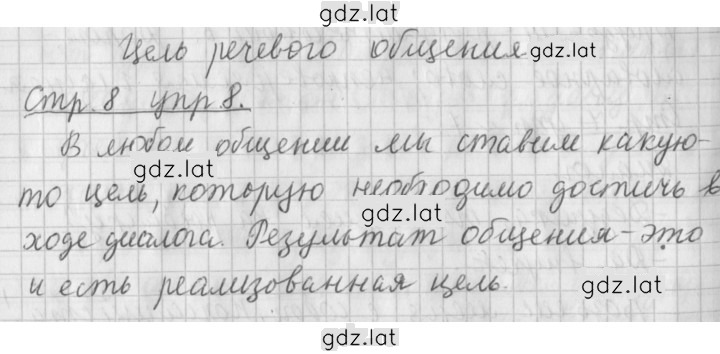 gdz.lat
Цель речевого общения gdz.lat
Стр. 8 упр 8.
В любом общении мы ставим какую-
gdz.lat
то цель, которую необходимо достичь в
gdz.lat
ходе диалога. Результат общения - это
и есть реализованная цель. gdz.lat
gdz.lat